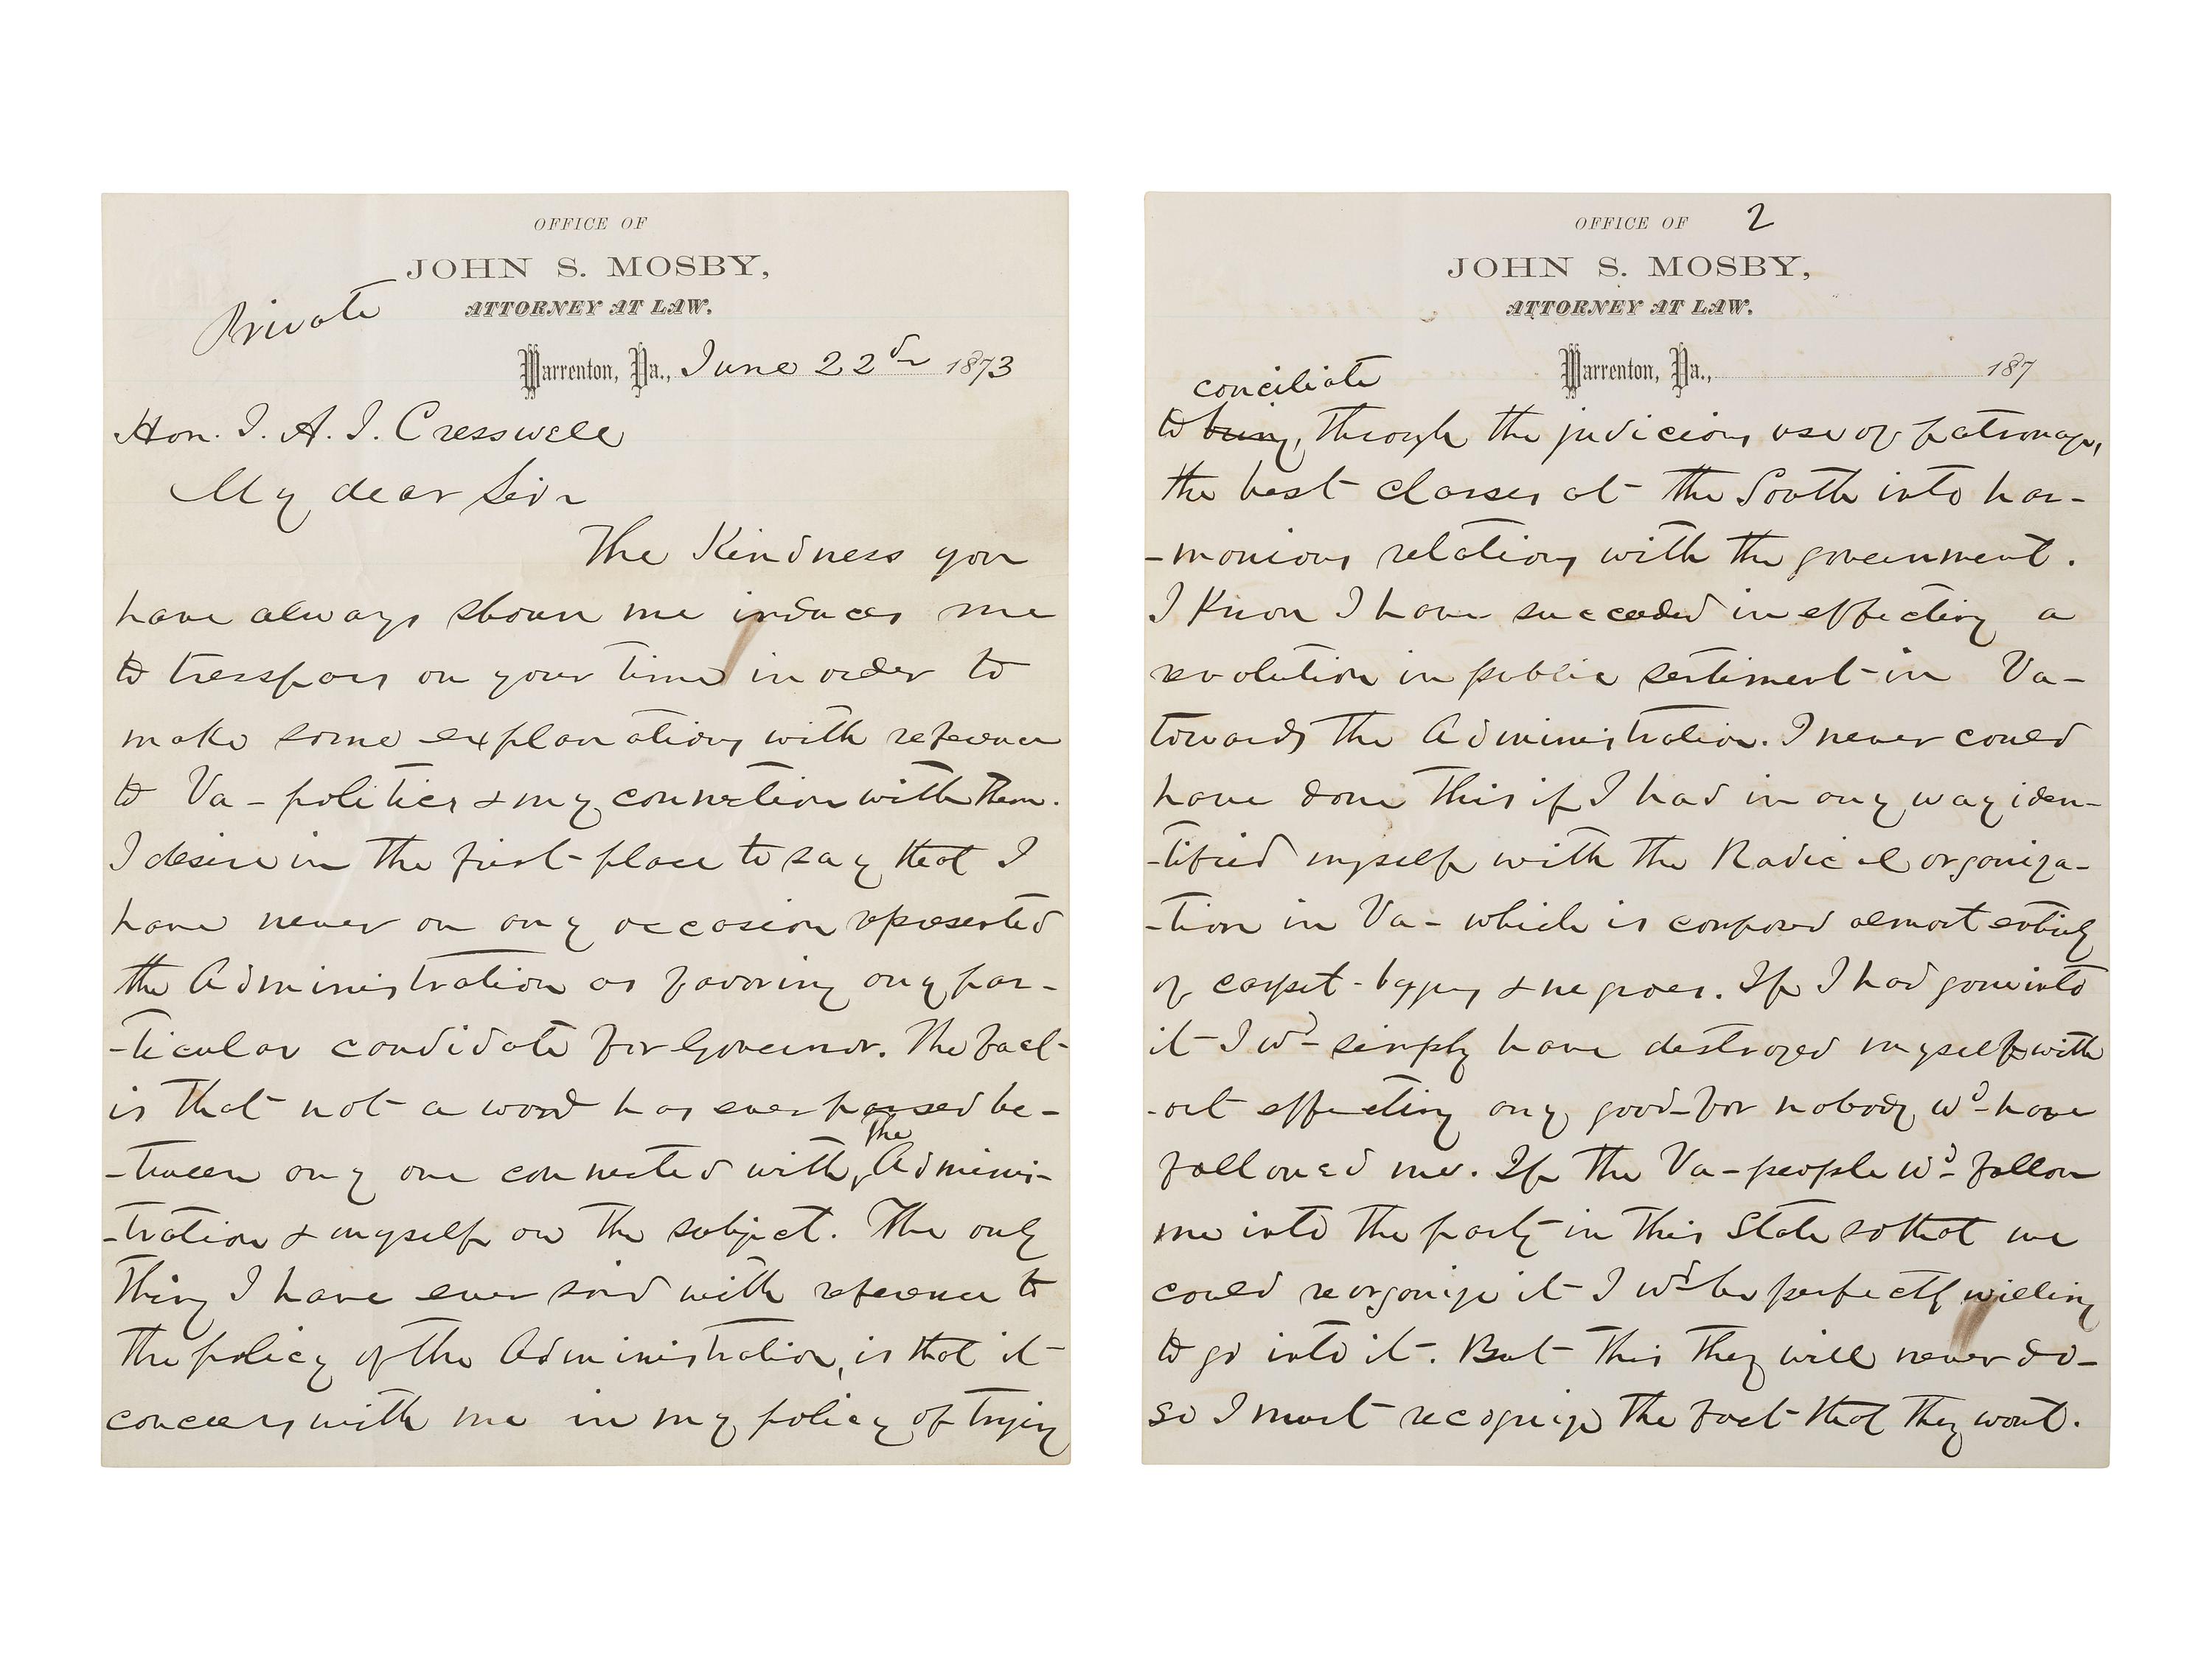 OFFICE OF
JOHN S. MOSBY,
ATTORNEY AT LAW.
Private
Warrenton, Va., June 22d 1873
Hon. J. A. J. Cresswell
My dear Sir
The Kindness you
have always shown me induces me
to tresspass on your time in order to
make some explanations with reference
to Va- politics & my connection with them.
I desire in the first-place to say that I
have never on any occasion represented
the Administration as favoring any par-
-ticular candidate for Governor. The fact-
is that not a word has ever passed be-
the
-tween any one connected with, Adminis-
-tration & myself on the subject. The only
thing I have ever said with reference to
the policy of the Administration, is that it-
concurs with me in my policy of trying
OFFICE OF 2
JOHN S. MOSBY,
ATTORNEY AT LAW.
Warrenton, Va., 187
conciliate
to bring, through the judicious use of patronage,
the best classes at the South into har-
-monious relations with the government.
I Know I have succeeded in effecting a
revolution in public sentiment-in Va-
towards the Administration. I never could
have done this if I had in any way iden-
-tified myself with the Radical organiza-
-tion in Va- which is composed almost entirely
of carpet-baggers & negroes. If I had gone into
it- I wd- simply have destroyed myself with
-out effecting any good-for nobody wd- have
followed me. If the Va-people wd- follow
me into the party in this State so that we
could reorganize it- I wd- be perfectly willing
to go into it-. But- this they will never do-
so I must recognize the fact-that they wont.